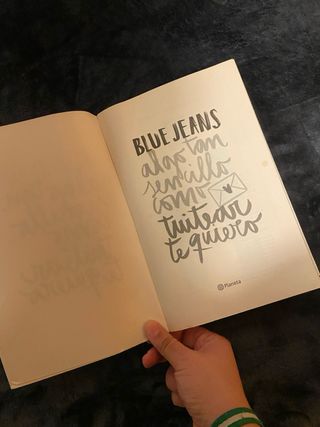 BLUE JEANS
algo tan
sencillo
como
tuitear
te quiero
Planeta